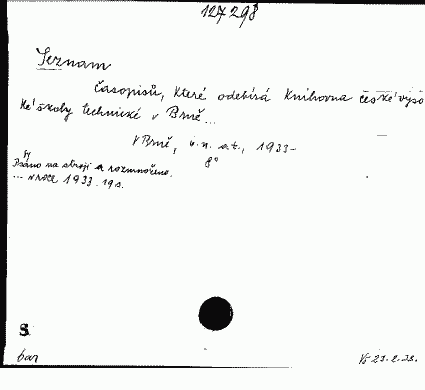 127298
Seznam
časopisů, které odebírá Knihovna české vyso
ké školy technické v Brně...
V Brně, v. n. a t., 1933-
8°
Psáno na stroji a rozmnoženo.
... v roce 1933. 19 s.
S
bar
23.2.38.